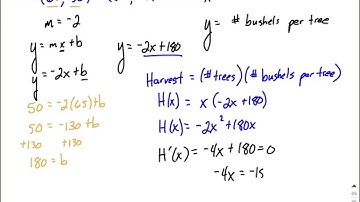 m = -2
y = # bushels per tree
y = mx + b
y = -2x + 180
y = -2x + b
Harvest = (# trees)(# bushels per tree)
50 = -2(65) + b
H(x) = x(-2x + 180)
50 = -130 + b
H(x) = -2x² + 180x
+130 +130
H'(x) = -4x + 180 = 0
180 = b
-4x = -18